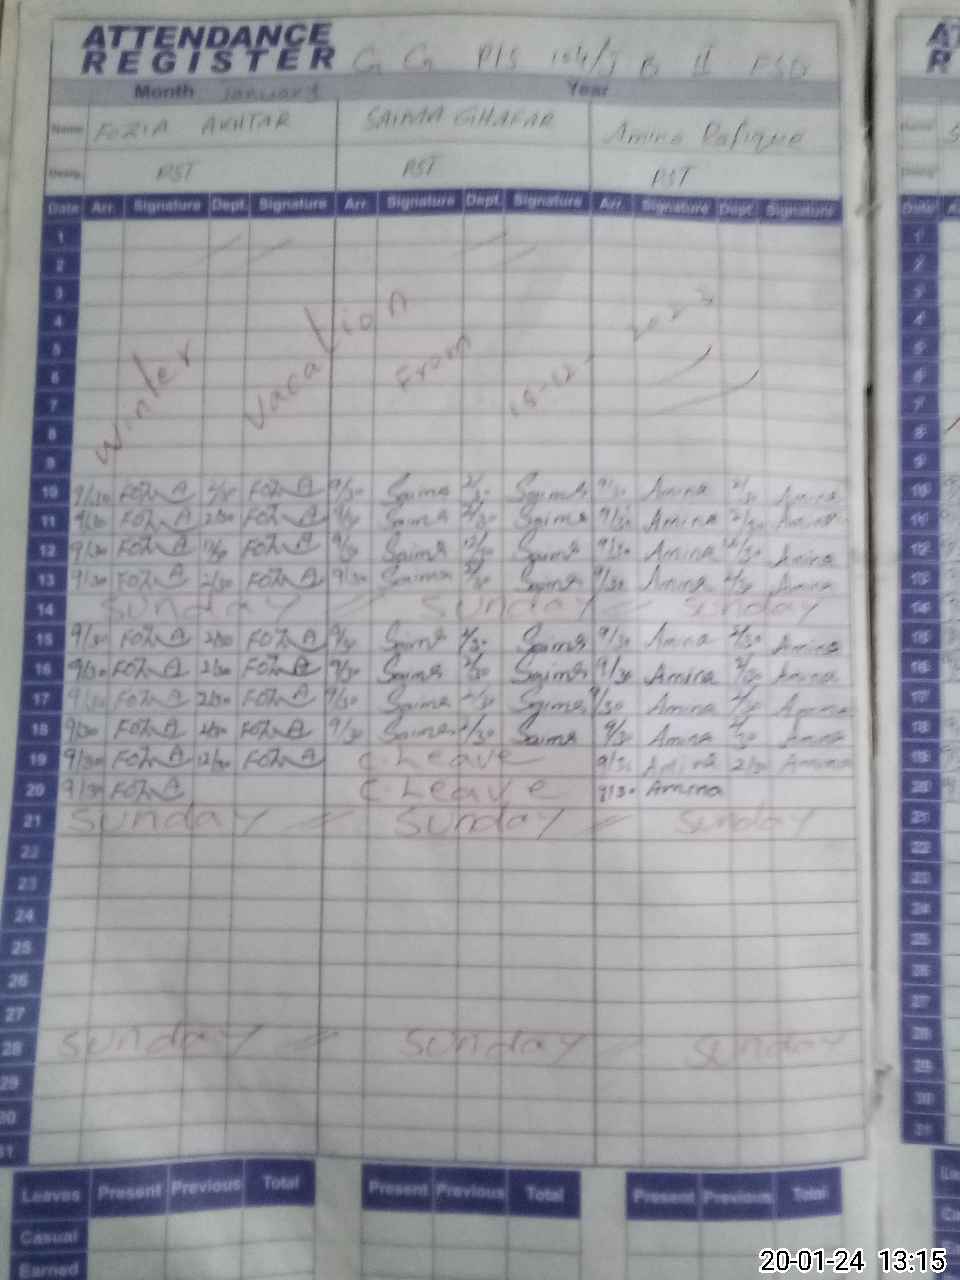 ATTENDANCE
REGISTER G G P/S 104/J B II FSD
Month January Year
Name FOZIA AKHTAR SAIMA GHAFAR Amina Rafique
Desig. PST PST PST
Date Arr. Signature Dept. Signature Arr. Signature Dept. Signature Arr. Signature Dept. Signature
1
2
3
4
5
6
7
8
9
winter vacation From 18-12-2023
10 9/30 2/30 9/30 Saima 2/30 Saima 9/30 Amina 2/30 Amina
11 9/30 2/30 Saima Saima 9/30 Amina 2/30 Amina
12 9/30 Saima 12/30 Saima 9/30 Amina 12/30 Amina
13 9/30 2/30 9/30 Saima Saima 9/30 Amina 2/30 Amina
14 Sunday Sunday Sunday
15 9/30 2/30 Saima 2/30 Saima 9/30 Amina 2/30 Amina
16 9/30 2/30 9/30 Saima 2/30 Saima 9/30 Amina 2/30 Amina
17 9/30 2/30 9/30 Saima 2/30 Saima 9/30 Amina 2/30 Amina
18 9/30 2/30 9/30 Saima 2/30 Saima 9/30 Amina 2/30 Amina
19 9/30 12/30 C. Leave 9/30 Amina 2/30 Amina
20 9/30 C. Leave 9/30 Amina
21 Sunday Sunday Sunday
22
23
24
25
26
27
28 Sunday Sunday Sunday
29
30
31
Leaves Present Previous Total Present Previous Total Present Previous Total
Casual
Earned
20-01-24 13:15